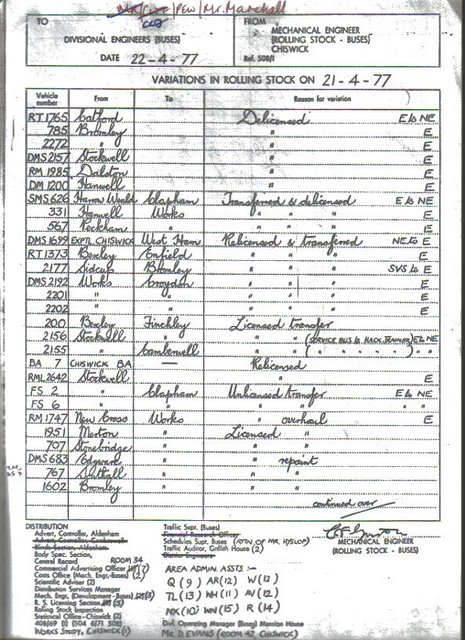 /PEW/Mr. Marshall
TO
DIVISIONAL ENGINEERS (BUSES)
DATE 22-4-77
FROM
MECHANICAL ENGINEER
(ROLLING STOCK - BUSES)
CHISWICK
Ref. 508/1
VARIATIONS IN ROLLING STOCK ON 21-4-77
Vehicle number From To Reason for variation
RT 1765 Catford Delicensed E to NE
785 Bromley " E
2272 " " E
DMS 2157 Stockwell " E
RM 1985 Dalston " E
DM 1200 Hanwell " E
SMS 626 Harrow Weald Clapham Transferred & delicensed E to NE
331 Hanwell Works " " " E
567 Peckham " " " " E
DMS 1699 EXPTL CHISWICK West Ham Relicensed & transferred NE to E
RT 1373 Bexley Enfield " " " E
2177 Sidcup Bromley " " " SVS to E
DMS 2192 Works Croydon " " " E
2201 " " " " " E
2202 " " " " " E
200 Bexley Finchley Licensed transfer
2156 Stockwell " " " (SERVICE BUS to TRAINER) E to NE
2155 " Camberwell " " ( " " " " ) " "
BA 7 CHISWICK BA — Relicensed
RML 2642 Stockwell " E
FS 2 " Clapham Unlicensed transfer E to NE
FS 6 " " " " " "
RM 1747 New Cross Works " overhaul E
1951 Merton " Licensed "
707 Stonebridge " " "
DMS 683 Edgware " " repaint
767 Southall " " "
1602 Bromley " " "
continued over
MECHANICAL ENGINEER
(ROLLING STOCK - BUSES)
DISTRIBUTION
Advert, Controller, Aldenham
Body Spec. Section,
Central Record ROOM 34
Commercial Advertising Officer (7)
Costs Office (Mech. Engr.-Buses) (2)
Scientific Adviser (2)
Distribution Services Manager
Mech. Engr. (Development - Buses) (3)
R. S. Licensing Section (5)
Rolling Stock Inspection
Statistical Office - Chiswick (2)
408/69 (1) (504 4/71 508)
WORKS STUDY, CHISWICK (1)
Traffic Supt. (Buses)
Financial Research Officer
Schedules Supt. Buses (ATTN OF MR. HYSLOP)
Traffic Auditor, Griffith House (2)
AREA ADMIN. ASSTS :-
Q (9) AR (12) W (12)
TL (13) WH (11) AV (12)
NX (10) WN (15) R (14)
Dvl. Operating Manager (Buses) Mansion House
Mr D EVANS (ROOM 42 CHISWICK)